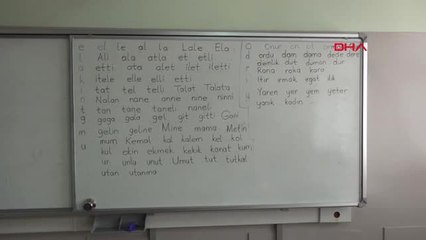 DHA
e el le al la Lale Ela
l Ali ala atla et etli
a etti ata alet ilet iletti
k itele elle elli etti
i tat tel telli Talat Talata
n Nalan nane anne nine ninni
t ton tane taneli naneli
g gaga gala gel git gitti Gani
m gelin geline Mine mama Metin
mum Kemal kal kalem kel kol
u kul ekin ekmek kekik kanat kum
ur unlu unut Umut tut tutkal
utan utanma
O Onur on ot
d ordu dam dama dede dere
demlik dut duman dur
r Rana roka kara
ı Itır ırmak ızgat ılık
y Yaren yer yem yeter
yanık kadın